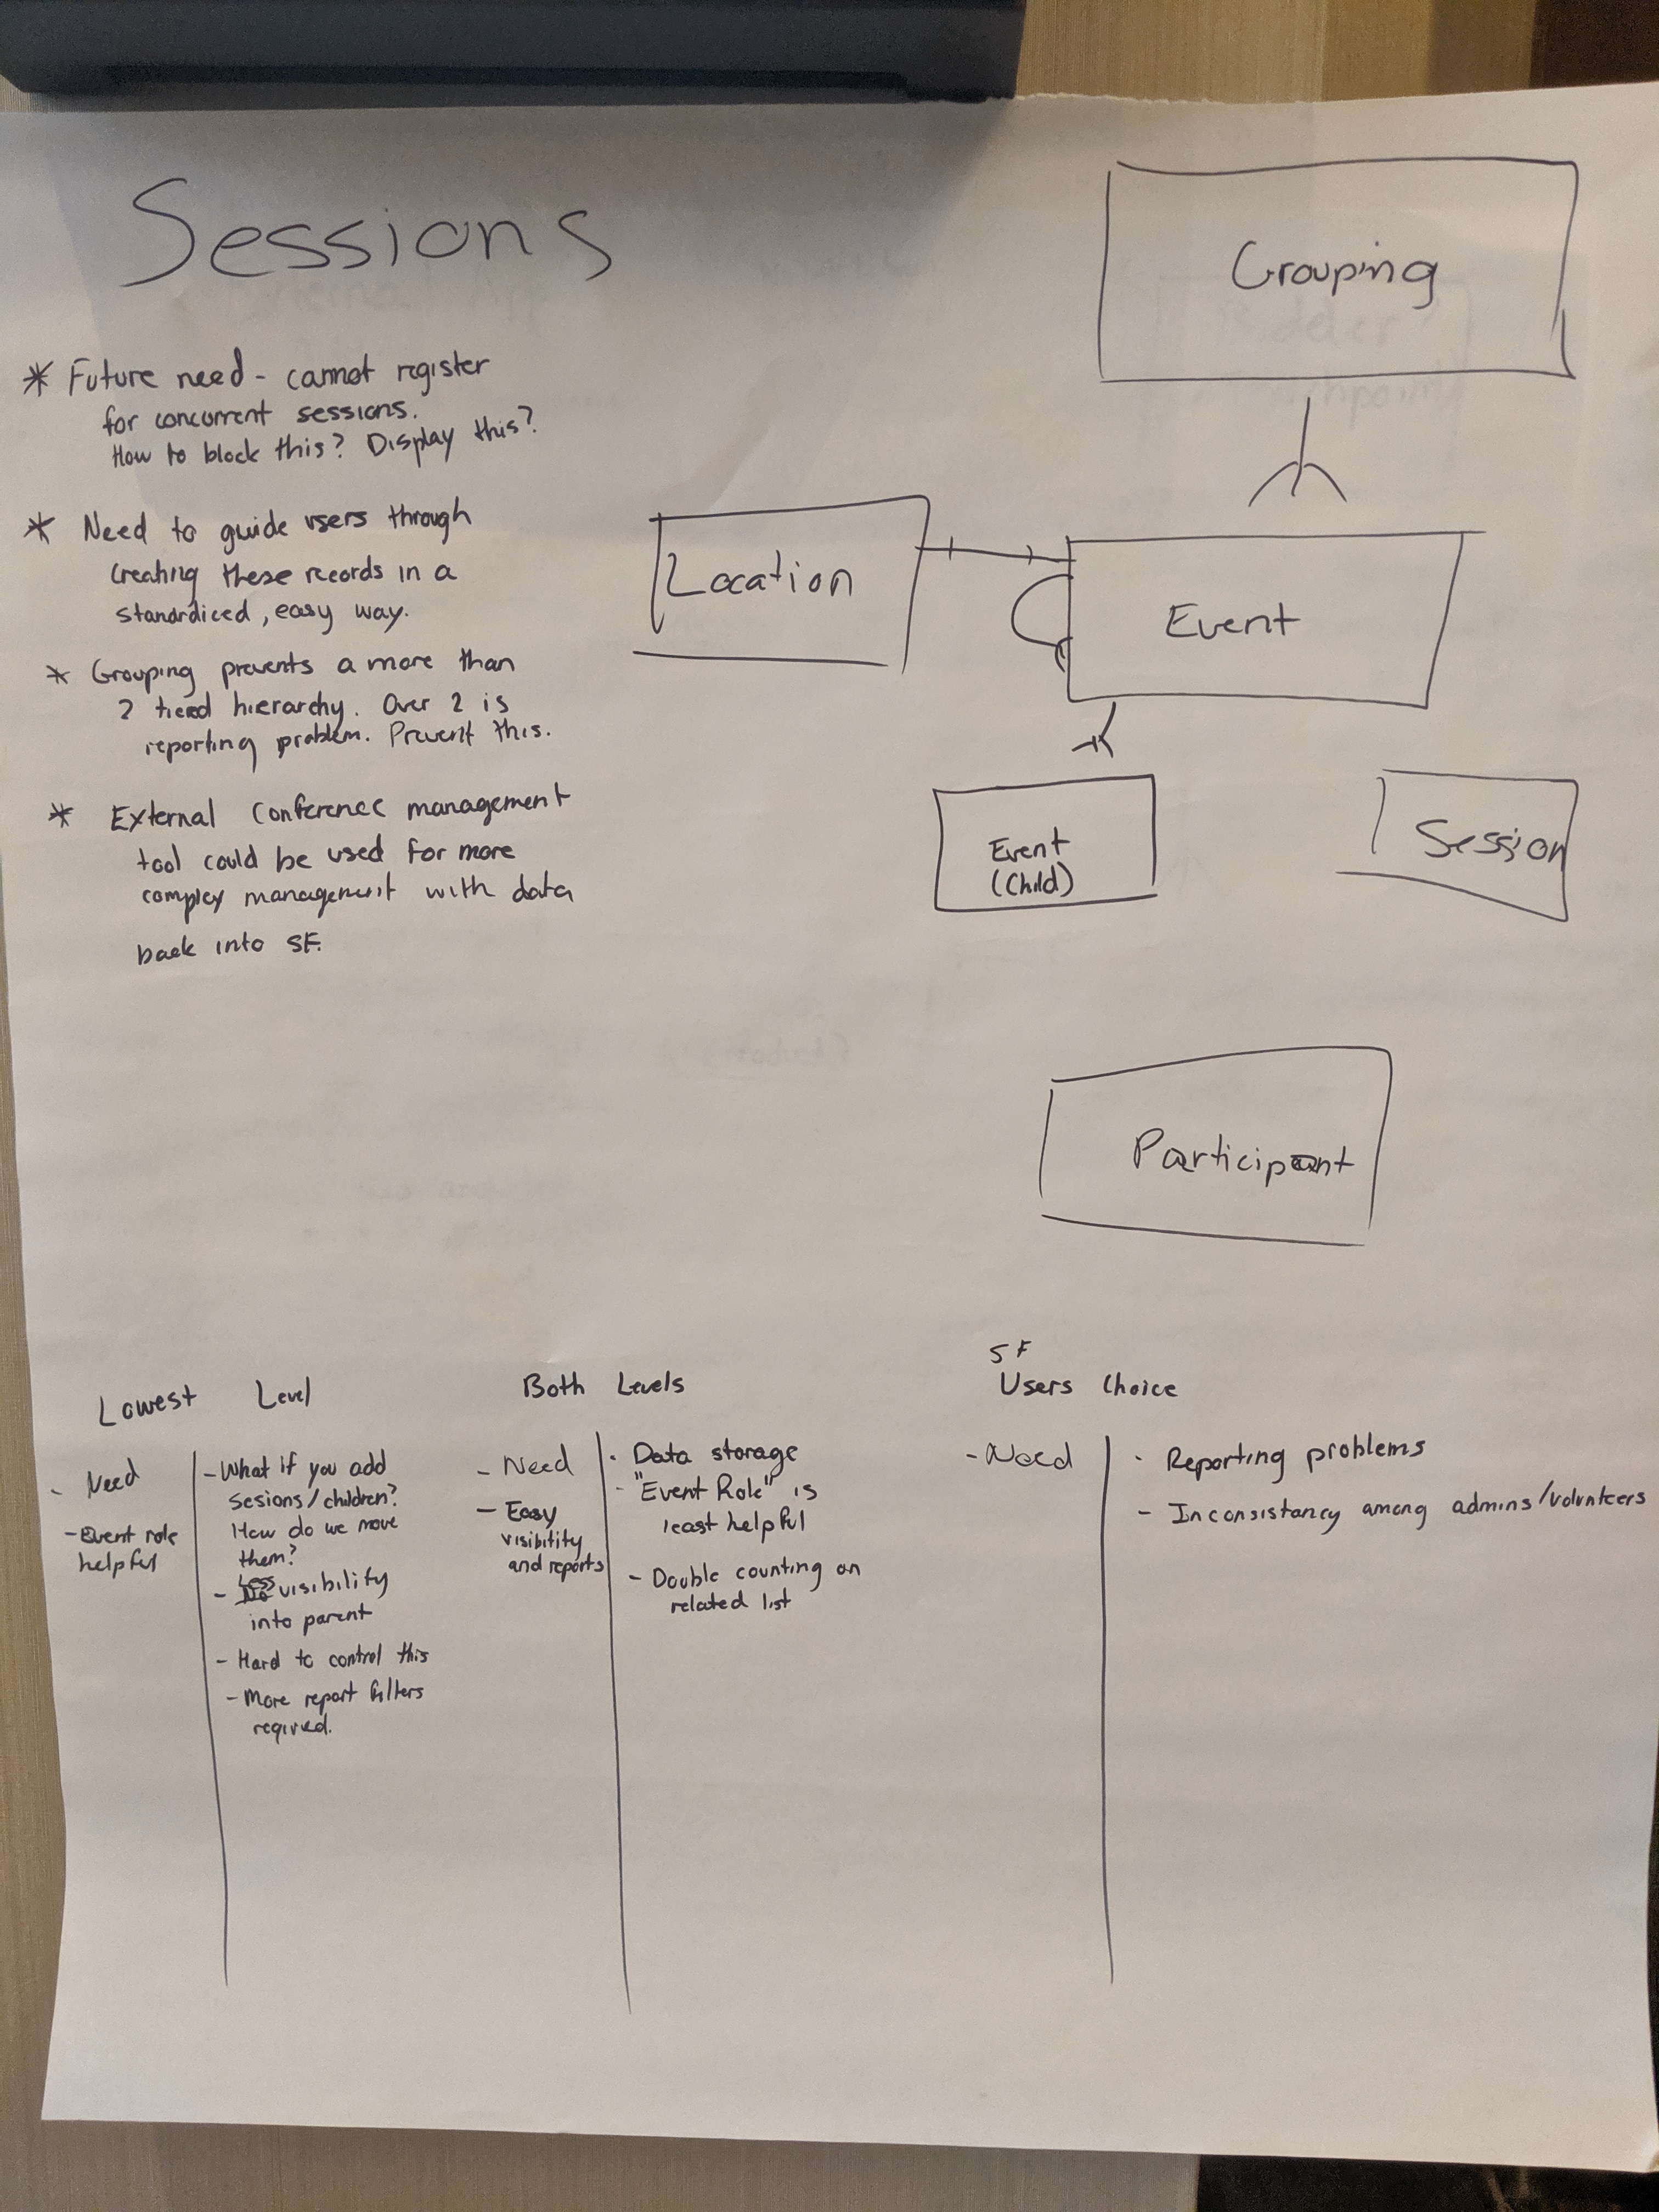 Sessions
* Future need - cannot register
for concurrent sessions.
How to block this? Display this?
* Need to guide users through
creating these records in a
standardiced, easy way.
* Grouping prevents a more than
2 tiered hierarchy. Over 2 is
reporting problem. Prevent this.
* External Conference management
tool could be used for more
complex management with data
back into SF.
Grouping
Location
Event
Event
(Child)
Session
Participant
Lowest Level
- Need
- Event role
helpful
- What if you add
Sesions/children?
How do we move
them?
- Less visibility
into parent
- Hard to control this
- More report filters
required.
Both Levels
- Need
- Easy
visibitity
and reports
- Data storage
- "Event Role" is
least helpful
- Double counting on
related list
SF
Users Choice
- Need
- Reporting problems
- Inconsistancy among admins/volunteers